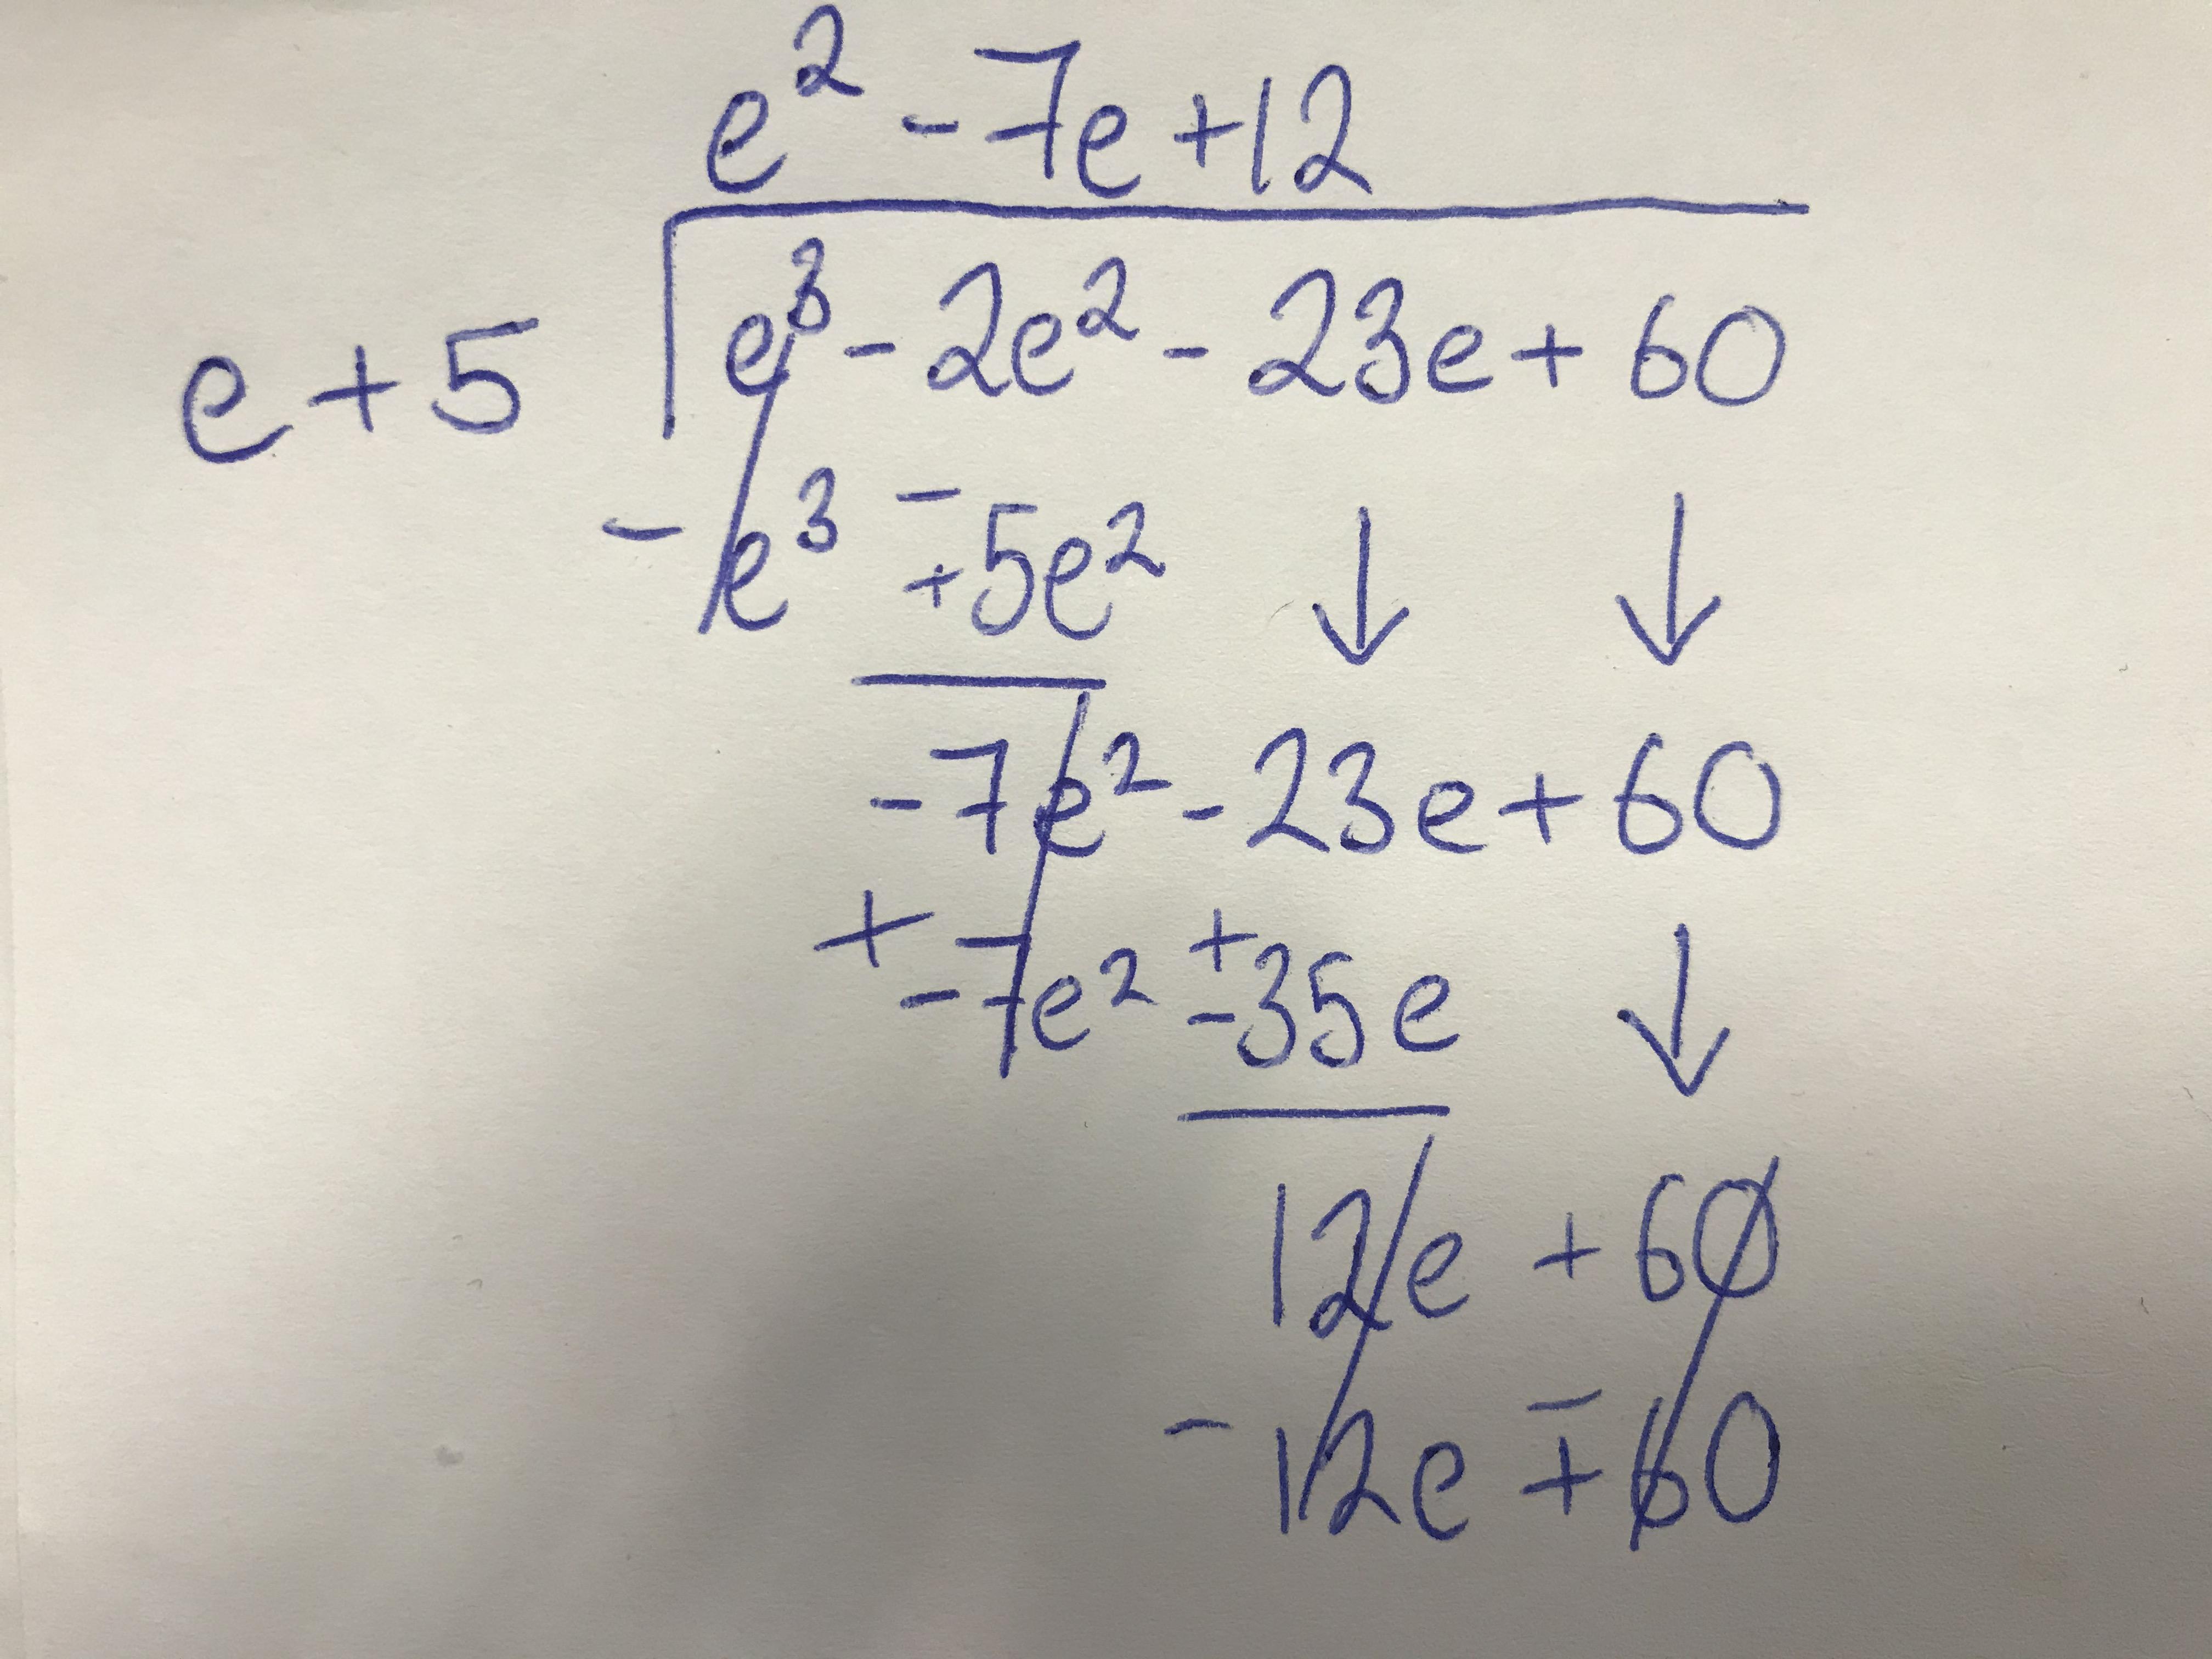 e² - 7e + 12
e + 5 e³ - 2e² - 23e + 60
- e³ - + 5e² ↓ ↓
-7e² - 23e + 60
+ -7e² + - 35e ↓
12e + 60
- 12e - + 60